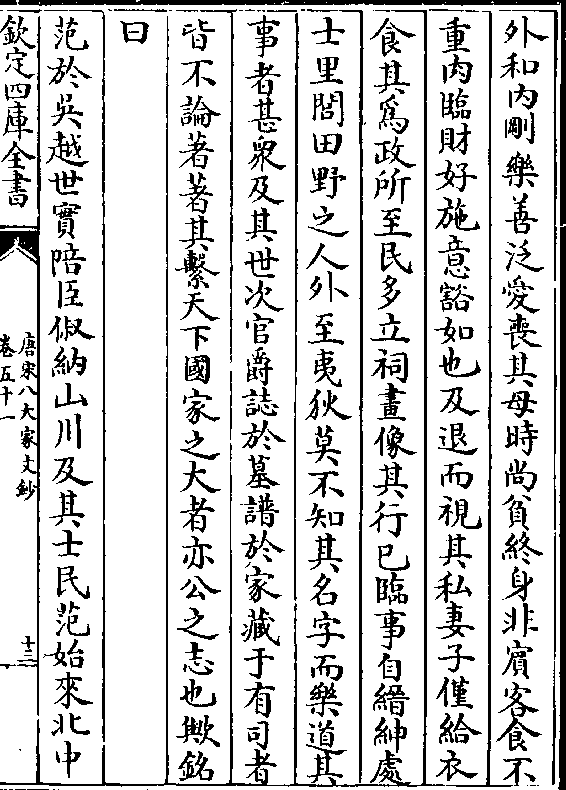 外和内剛樂善泛愛喪其母時尚貧終身非賔客食不
重肉臨財好施意豁如也及退而視其私妻子僅給衣
食其為政所至民多立祠畫像其行已臨事自縉紳處
士里閭田野之人外至夷狄莫不知其名字而樂道其
事者甚衆及其世次官爵誌於墓譜於家藏于有司者
皆不論著著其繫天下國家之大者亦公之志也歟銘
曰
范於吳越世實陪臣俶納山川及其士民范始來北中
欽定四庫全書
唐宋八大家文鈔
卷五十一
十三